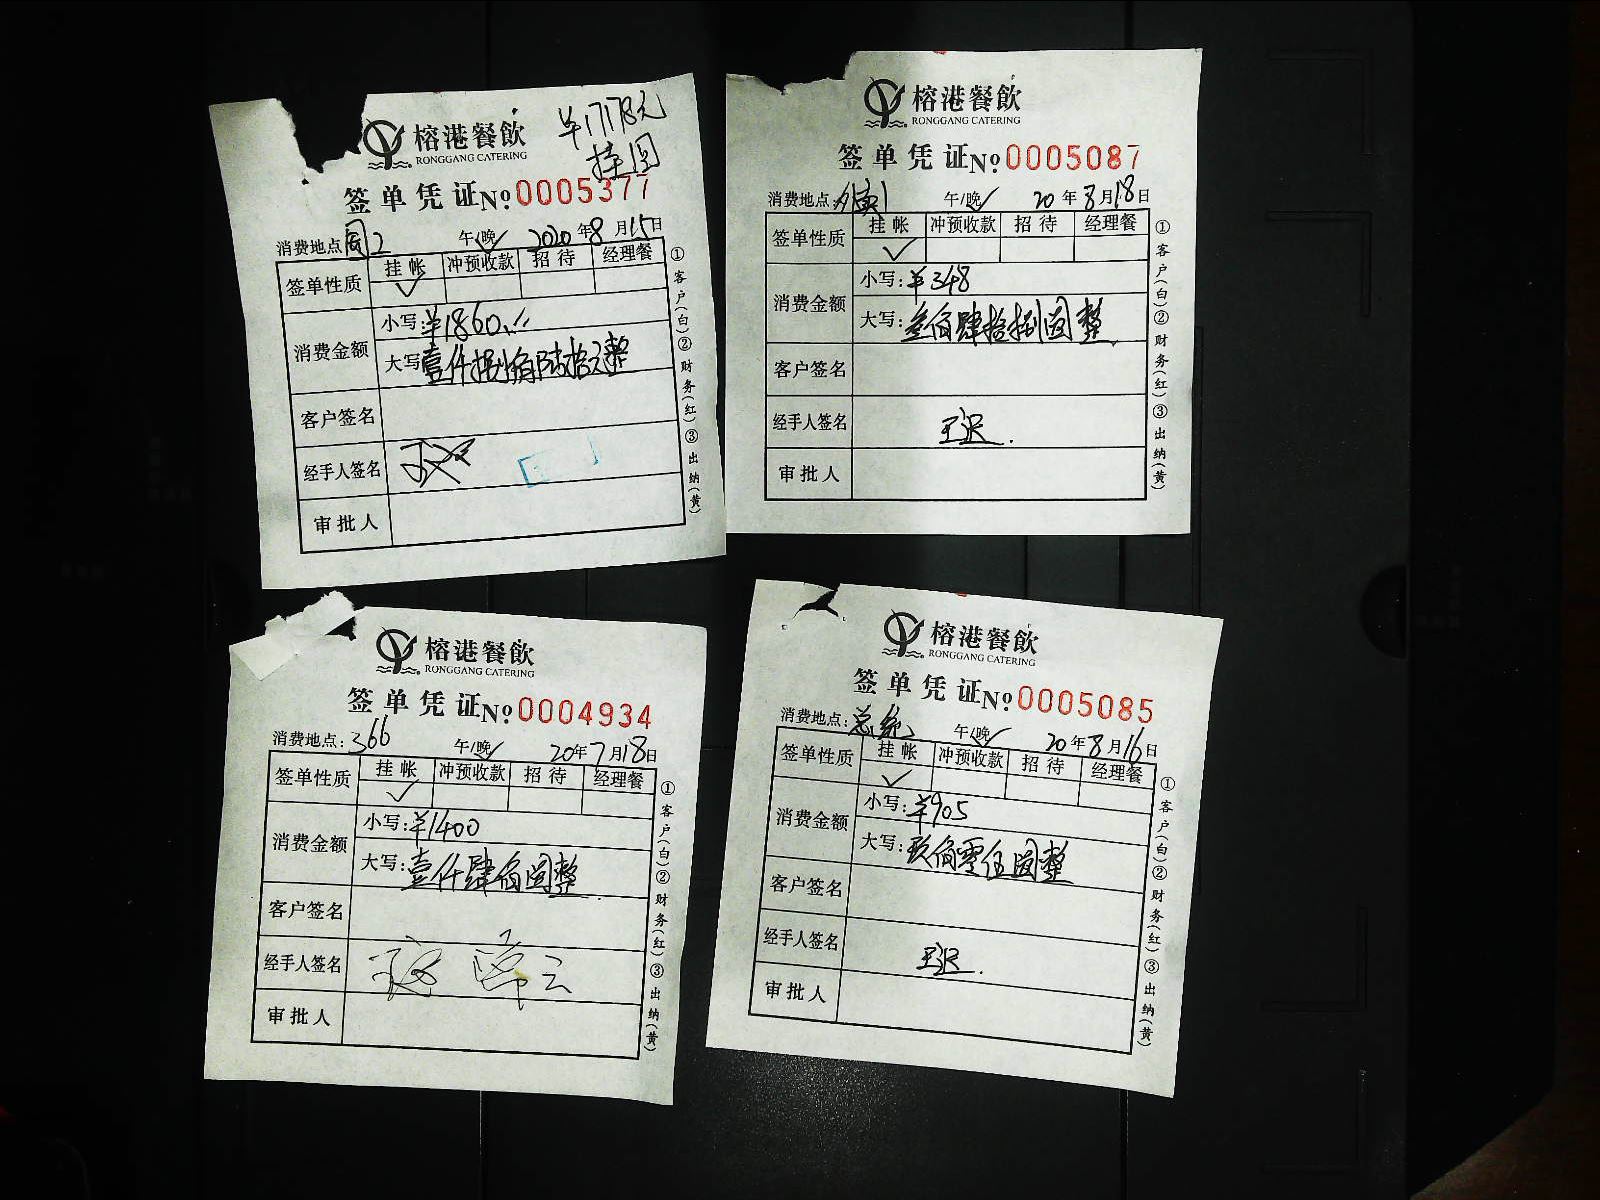 榕港餐飲
RONGGANG CATERING
¥17178元
挂
签单凭证 No 0005377
消费地点: 2 午/晚✓ 2020年8月15日
签单性质 挂帐 冲预收款 招待 经理餐
✓
消费金额 小写:¥1860.〃
大写:壹仟捌佰陆拾元整
客户签名
经手人签名
审批人
①客户(白)②财务(红)③出纳(黄)
榕港餐飲
RONGGANG CATERING
签单凭证 No 0005087
消费地点:外卖1 午/晚✓ 20年8月18日
签单性质 挂帐 冲预收款 招待 经理餐
✓
消费金额 小写:¥348
大写:叁佰肆拾捌圆整
客户签名
经手人签名
审批人
①客户(白)②财务(红)③出纳(黄)
榕港餐飲
RONGGANG CATERING
签单凭证 No 0004934
消费地点:366 午/晚✓ 20年7月18日
签单性质 挂帐 冲预收款 招待 经理餐
✓
消费金额 小写:¥1400
大写:壹仟肆佰圆整
客户签名
经手人签名
审批人
①客户(白)②财务(红)③出纳(黄)
榕港餐飲
RONGGANG CATERING
签单凭证 No 0005085
消费地点:总统 午/晚✓ 20年8月16日
签单性质 挂帐 冲预收款 招待 经理餐
✓
消费金额 小写:¥905
大写:玖佰零伍圆整
客户签名
经手人签名
审批人
①客户(白)②财务(红)③出纳(黄)